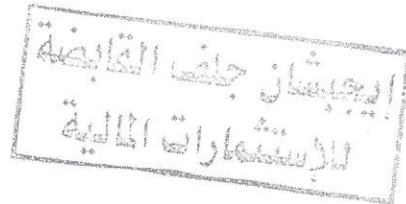 العجيان جلف القابضة
للإستثمارات المالية